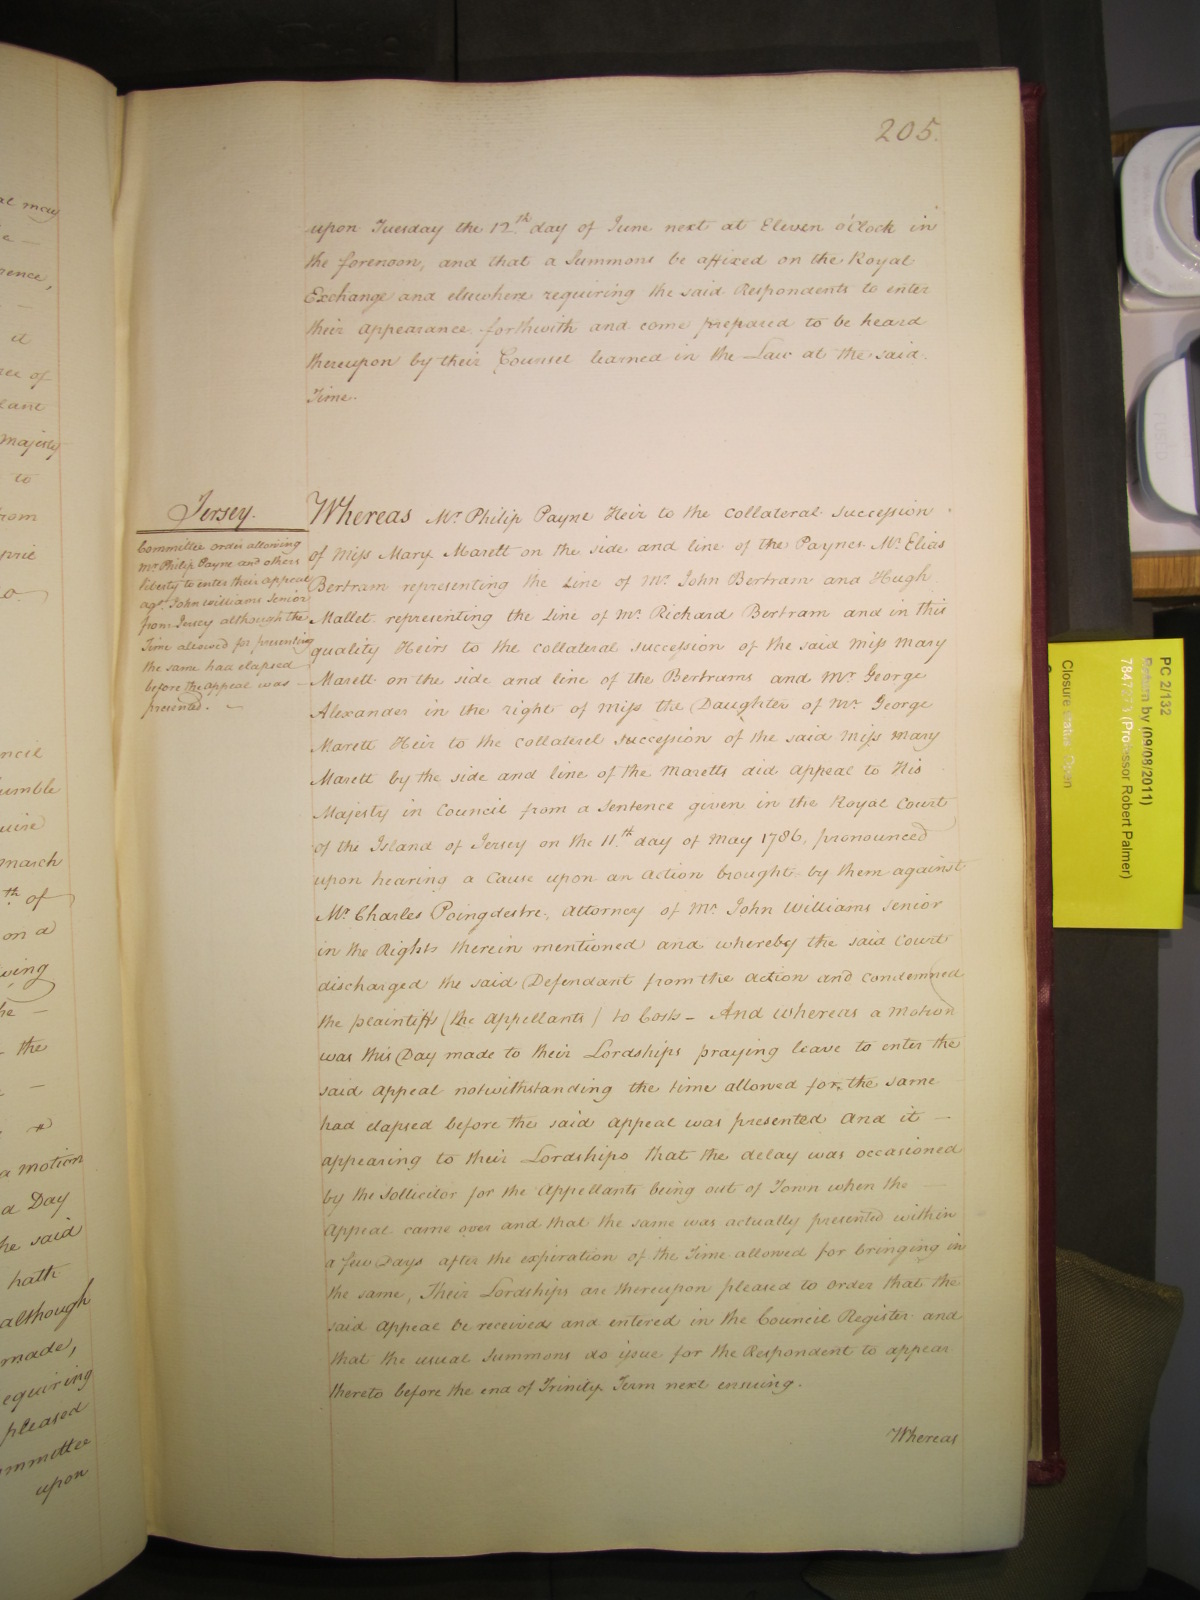 al may
rence,
d
ree of
lant
majesty
to
from
ncil
umble
uire
march
th of
on a
wing
he —
the
a motion
a Day
he said
hath
although
made,
equiring
pleased
ommittee
upon
205.
upon Tuesday the 12th day of June next at Eleven o'Clock in
the forenoon, and that a Summons be affixed on the Royal
Exchange and elsewhere requiring the said Respondents to enter
their appearance forthwith and come prepared to be heard
thereupon by their Counsel learned in the Law at the said
Time.
Jersey.
Committee order allowing
Mr. Philip Payne and others
liberty to enter their appeal
agt. John Williams Senior
from Jersey although the
Time allowed for presenting
the same had elapsed
before the appeal was —
presented.
Whereas Mr. Philip Payne Heir to the collateral succession
of Miss Mary Marett on the side and line of the Paynes Mr. Elias
Bertram representing the Line of Mr. John Bertram and Hugh
Mallet representing the Line of Mr. Richard Bertram and in this
quality Heirs to the collateral succession of the said Miss Mary
Marett on the side and line of the Bertrams and Mr. George
Alexander in the right of Miss the Daughter of Mr. George
Marett Heir to the collateral succession of the said Miss Mary
Marett by the side and line of the Maretts did appeal to His
Majesty in Council from a Sentence given in the Royal Court
of the Island of Jersey on the 11th day of May 1786, pronounced
upon hearing a Cause upon an action brought by them against
Mr. Charles Poingdestre, Attorney of Mr. John Williams Senior
in the Rights therein mentioned and whereby the said Court
discharged the said Defendant from the action and condemned
the plaintiffs (the appellants) to Costs – And whereas a Motion
was this Day made to their Lordships praying leave to enter the
said appeal notwithstanding the time allowed for the same
had elapsed before the said appeal was presented And it —
appearing to their Lordships that the delay was occasioned
by the Sollicitor for the Appellants being out of Town when the —
Appeal came over and that the same was actually presented within
a few Days after the expiration of the Time allowed for bringing in
the same, Their Lordships are thereupon pleased to order that the
said appeal be received and entered in the Council Register and
that the usual Summons do issue for the Respondent to appear
thereto before the end of Trinity Term next ensuing.
Whereas
PC 2/132
Return by (09/08/2011)
(Professor Robert Palmer)
Closure status Open